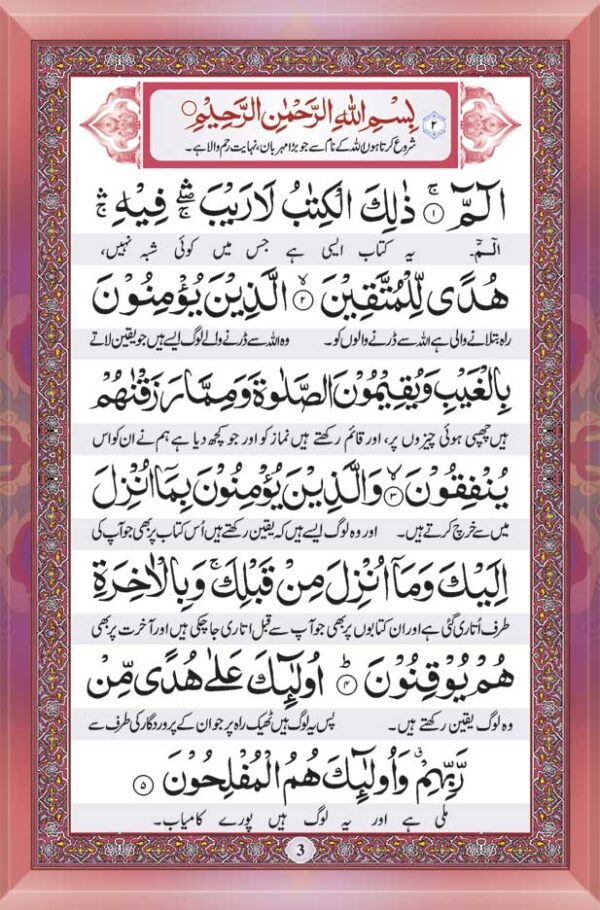 بِسْمِ اللّٰهِ الرَّحْمٰنِ الرَّحِيْمِ ۲
شروع کرتا ہوں اللہ کے نام سے جو بڑا مہربان، نہایت رحم والا ہے۔
الٓمّٓ ۚ﴿۱﴾ ذٰلِكَ الْكِتٰبُ لَا رَيْبَ ۛۖ فِيْهِ ۛۚ
الٓمّٓ۔ یہ کتاب ایسی ہے جس میں کوئی شبہ نہیں،
هُدًى لِّلْمُتَّقِيْنَ ۙ﴿۲﴾ الَّذِيْنَ يُؤْمِنُوْنَ
راہ بتلانے والی ہے اللہ سے ڈرنے والوں کو۔ وہ اللہ سے ڈرنے والے لوگ ایسے ہیں جو یقین لاتے
بِالْغَيْبِ وَيُقِيْمُوْنَ الصَّلٰوةَ وَمِمَّا رَزَقْنٰهُمْ
ہیں چھپی ہوئی چیزوں پر، اور قائم رکھتے ہیں نماز کو اور جو کچھ دیا ہے ہم نے ان کو اس
يُنْفِقُوْنَ ۙ﴿۳﴾ وَالَّذِيْنَ يُؤْمِنُوْنَ بِمَآ اُنْزِلَ
میں سے خرچ کرتے ہیں۔ اور وہ لوگ ایسے ہیں کہ یقین رکھتے ہیں اُس کتاب پر بھی جو آپ کی
اِلَيْكَ وَمَآ اُنْزِلَ مِنْ قَبْلِكَ ۚ وَبِالْاٰخِرَةِ
طرف اُتاری گئی ہے اور ان کتابوں پر بھی جو آپ سے قبل اتاری جا چکی ہیں اور آخرت پر بھی
هُمْ يُوْقِنُوْنَ ؕ﴿۴﴾ اُولٰٓئِكَ عَلٰى هُدًى مِّنْ
وہ لوگ یقین رکھتے ہیں۔ پس یہ لوگ ہیں ٹھیک راہ پر جو ان کے پروردگار کی طرف سے
رَّبِّهِمْ ۗ وَاُولٰٓئِكَ هُمُ الْمُفْلِحُوْنَ ﴿۵﴾
ملی ہے اور یہ لوگ ہیں پورے کامیاب۔
3